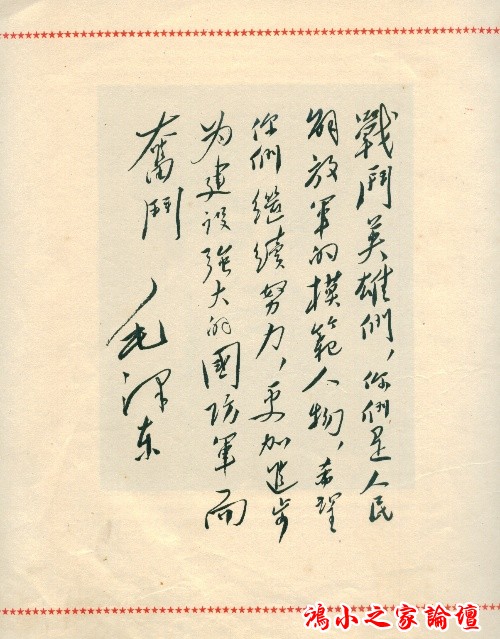 戰鬥英雄們，你们是人民
解放軍的模範人物，希望
你們继續努力，更加進步
为建设強大的國防軍而
奮鬥
毛泽东
鴻小之家論壇